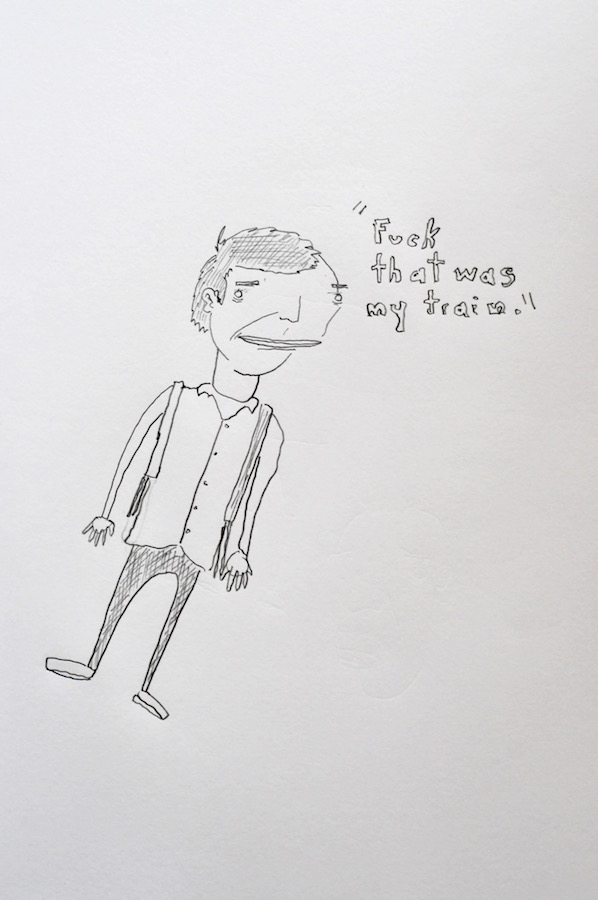 "Fuck
that was
my train."